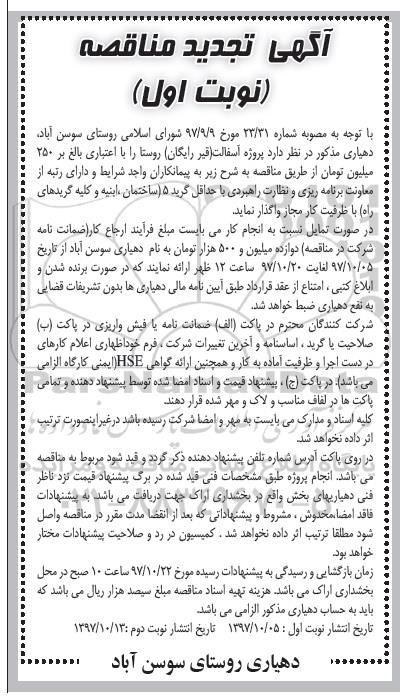 آگهی تجدید مناقصه
(نوبت اول)
با توجه به مصوبه شماره ۲۳/۳۱ مورخ ۹۷/۹/۹ شورای اسلامی روستای سوسن آباد،
دهیاری مذکور در نظر دارد پروژه آسفالت(قیر رایگان) روستا را با اعتباری بالغ بر ۲۵۰
میلیون تومان از طریق مناقصه به شرح زیر به پیمانکاران واجد شرایط و دارای رتبه از
معاونت برنامه ریزی و نظارت راهبردی با حداقل گرید ۵ (ساختمان ،ابنیه و کلیه گریدهای
راه) با ظرفیت کار مجاز واگذار نماید.
در صورت تمایل نسبت به انجام کار می بایست مبلغ فرآیند ارجاع کار(ضمانت نامه
شرکت در مناقصه) دوازده میلیون و ۵۰۰ هزار تومان به نام دهیاری سوسن آباد از تاریخ
۹۷/۱۰/۰۵ لغایت ۹۷/۱۰/۲۰ ساعت ۱۲ ظهر ارائه نمایند که در صورت برنده شدن و
ابلاغ کتبی ، امتناع از عقد قرارداد طبق آیین نامه مالی دهیاری ها بدون تشریفات قضایی
به نفع دهیاری ضبط خواهد شد.
شرکت کنندگان محترم در پاکت (الف) ضمانت نامه یا فیش واریزی در پاکت (ب)
صلاحیت یا گرید ، اساسنامه و آخرین تغییرات شرکت ، فرم خوداظهاری اعلام کارهای
در دست اجرا و ظرفیت آماده به کار و همچنین ارائه گواهی HSE(ایمنی کارگاه الزامی
می باشد). در پاکت (ج) ، پیشنهاد قیمت و اسناد امضا شده توسط پیشنهاد دهنده و تمامی
پاکت ها در لفاف مناسب و لاک و مهر شده قرار دهند.
کلیه اسناد و مدارک می بایست به مهر و امضا شرکت رسیده باشد درغیراینصورت ترتیب
اثر داده نخواهد شد.
در روی پاکت آدرس شماره تلفن پیشنهاد دهنده ذکر گردد و قید شود مربوط به مناقصه
می باشد. انجام پروژه طبق مشخصات فنی قید شده در برگ پیشنهاد قیمت نزد ناظر
فنی دهیاریهای بخش واقع در بخشداری اراک جهت دریافت می باشد. به پیشنهادات
فاقد امضا،مخدوش ، مشروط و پیشنهاداتی که بعد از انقضا مدت مقرر در مناقصه واصل
شود مطلقا ترتیب اثر داده نخواهد شد . کمیسیون در رد و صلاحیت پیشنهادات مختار
خواهد بود.
زمان بازگشایی و رسیدگی به پیشنهادات رسیده مورخ ۹۷/۱۰/۲۲ ساعت ۱۰ صبح در محل
بخشداری اراک می باشد. هزینه تهیه اسناد مناقصه مبلغ سیصد هزار ریال می باشد که
باید به حساب دهیاری مذکور الزامی می باشد.
تاریخ انتشار نوبت اول : ۱۳۹۷/۱۰/۰۵ تاریخ انتشار نوبت دوم :۱۳۹۷/۱۰/۱۳
دهیاری روستای سوسن آباد